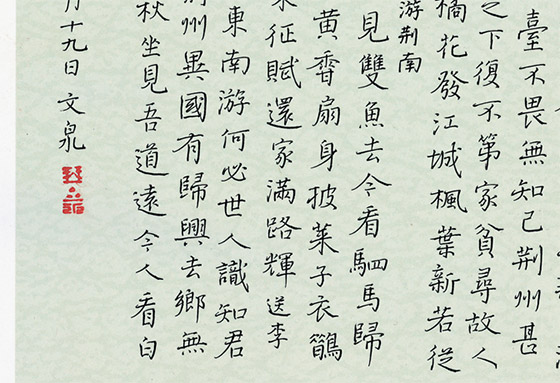 臺不畏無知己荊州甚
之下復不第家貧尋故人
橘花發江城楓葉新若從
游荆南
見雙魚去今看駟馬歸
黄香扇身披萊子衣鵲
征賦還家滿路輝 送李
東南游何必世人識知君
州異國有歸興去鄉無
秋坐見吾道遠令人看白
月十九日 文泉